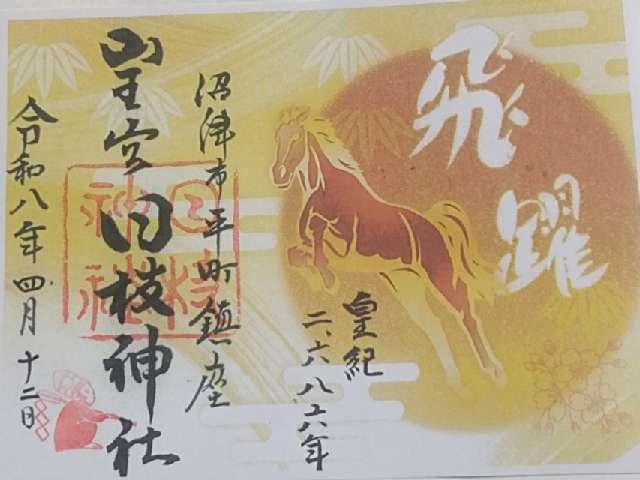 飛躍
皇紀
二、六八六年
沼津市平町鎮座
山王宮日枝神社
日枝
神社
令和八年四月十二日